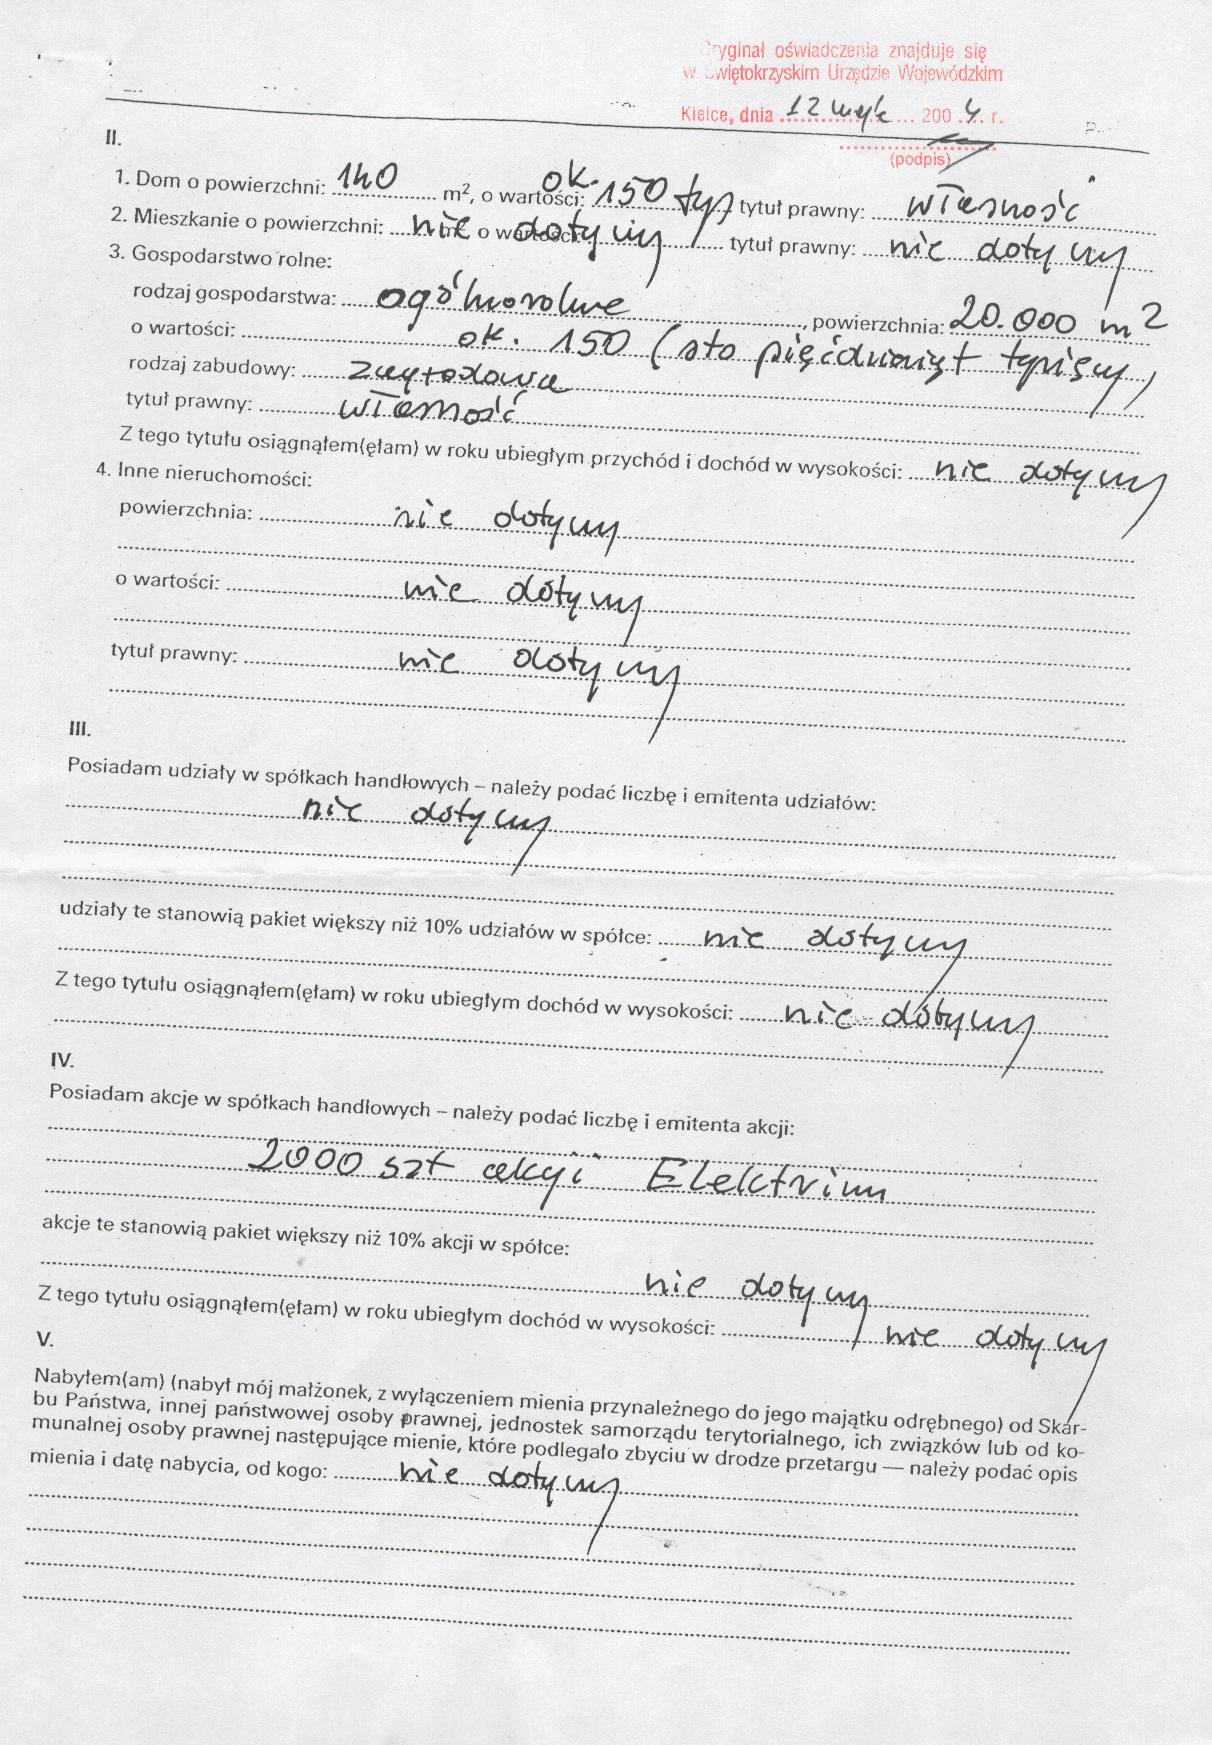 Oryginał oświadczenia znajduje się
w Świętokrzyskim Urzędzie Wojewódzkim
Kielce, dnia 12 maja 2004 r.
(podpis)
II.
1. Dom o powierzchni: 140 m², o wartości: ok. 150 tys tytuł prawny: własność
2. Mieszkanie o powierzchni: nie dotyczy m², o wartości: tytuł prawny: nie dotyczy
3. Gospodarstwo rolne:
rodzaj gospodarstwa: ogólnorolne, powierzchnia: 20.000 m2
o wartości: ok. 150 (sto pięćdziesiąt tysięcy)
rodzaj zabudowy: zagrodowa
tytuł prawny: własność
Z tego tytułu osiągnąłem(ęłam) w roku ubiegłym przychód i dochód w wysokości: nie dotyczy
4. Inne nieruchomości:
powierzchnia: nie dotyczy
o wartości: nie dotyczy
tytuł prawny: nie dotyczy
III.
Posiadam udziały w spółkach handlowych – należy podać liczbę i emitenta udziałów:
nie dotyczy
udziały te stanowią pakiet większy niż 10% udziałów w spółce: nie dotyczy
Z tego tytułu osiągnąłem(ęłam) w roku ubiegłym dochód w wysokości: nie dotyczy
IV.
Posiadam akcje w spółkach handlowych – należy podać liczbę i emitenta akcji:
2000 szt akcji Elektrim
akcje te stanowią pakiet większy niż 10% akcji w spółce:
nie dotyczy
Z tego tytułu osiągnąłem(ęłam) w roku ubiegłym dochód w wysokości: nie dotyczy
V.
Nabyłem(am) (nabył mój małżonek, z wyłączeniem mienia przynależnego do jego majątku odrębnego) od Skar-
bu Państwa, innej państwowej osoby prawnej, jednostek samorządu terytorialnego, ich związków lub od ko-
munalnej osoby prawnej następujące mienie, które podlegało zbyciu w drodze przetargu — należy podać opis
mienia i datę nabycia, od kogo: nie dotyczy